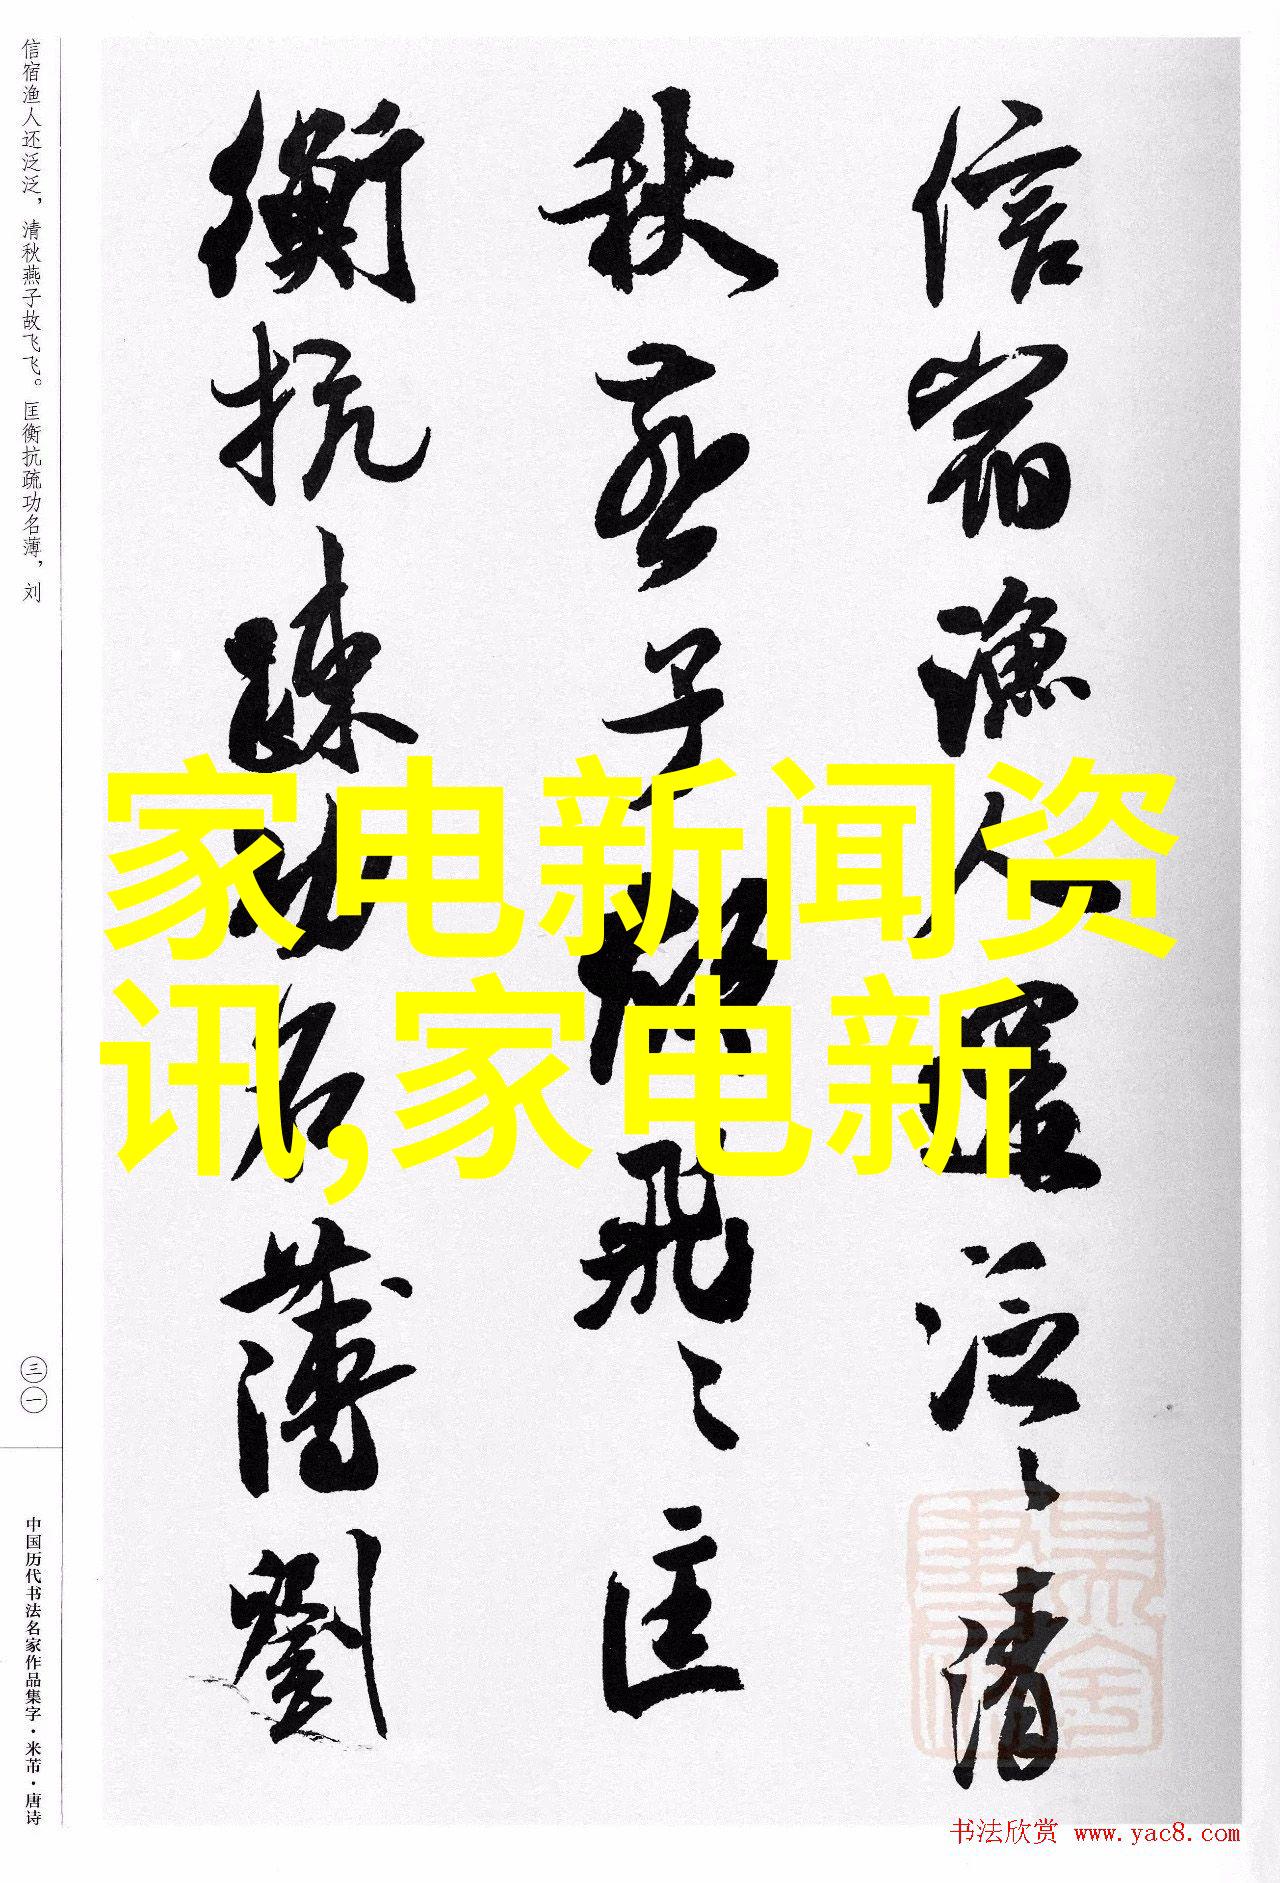 信宿渔人还泛泛，清秋燕子故飞飞。匡衡抗疏功名薄，刘
信宿漁人還泛々清
秋燕子故飛々匡
衡抗疏功名薄劉
家电新闻资
讯,家电新
三一
中国历代书法名家作品集字·米芾·唐诗
书法欣赏 www.yac8.com